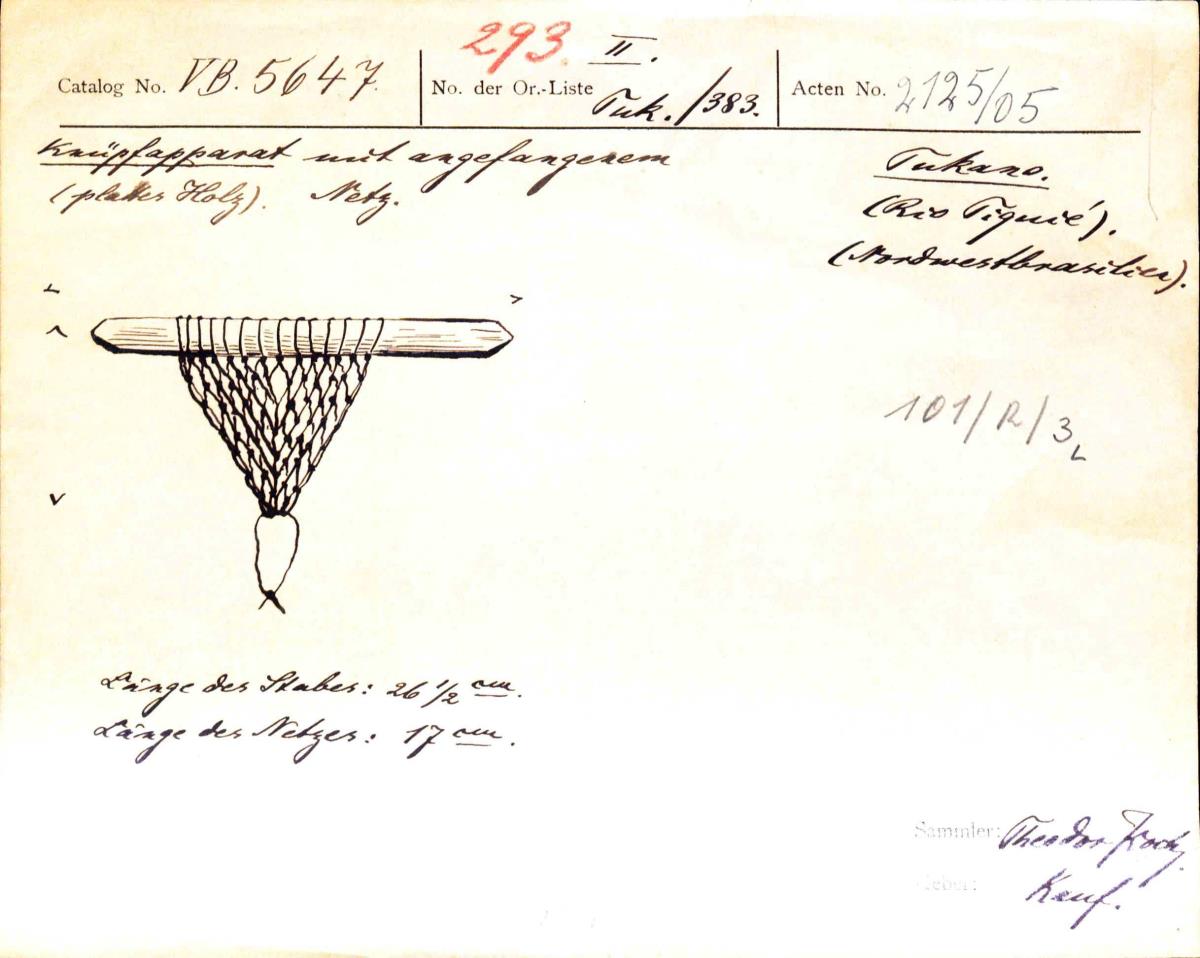 293. II.
Catalog No. VB. 5647. No. der Or.-Liste Tuk./383. Acten No. 2125/05
Knüpfapparat mit angefangenem
(plattes Holz). Netz.
Tukano.
(Rio Tiquié).
(Nordwestbrasilien).
101/R/3
Länge des Stabes: 26 1/2 cm.
Länge des Netzes: 17 cm.
Sammler: Theodor Koch.
Geber: Kauf.